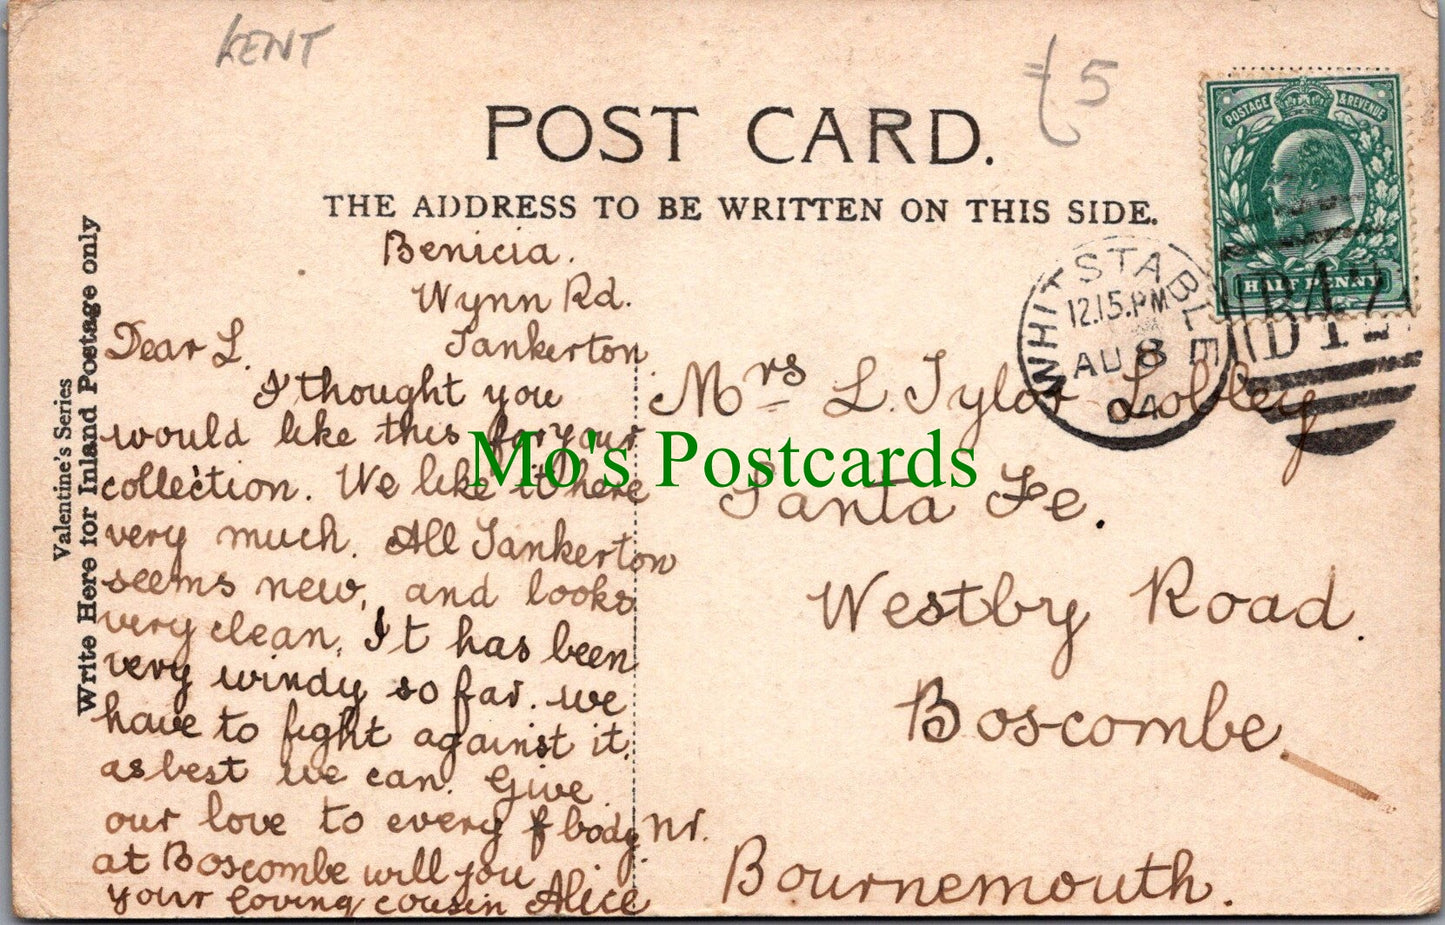 KENT
£5
POST CARD.
THE ADDRESS TO BE WRITTEN ON THIS SIDE.
POSTAGE & REVENUE
HALF PENNY
WHITSTABLE
12.15.PM
AU 8
04
B42
Valentine's Series
Write Here for Inland Postage only
Benicia.
Wynn Rd.
Tankerton
Dear L.
I thought you
would like this for your
collection. We like it here
very much. All Tankerton
seems new, and looks
very clean. It has been
very windy so far. we
have to fight against it
as best we can. Give
our love to every body
at Boscombe will you
your loving cousin Alice
Mrs L. Tylor Lobley
Santa Fe.
Westby Road.
Boscombe.
nr.
Bournemouth.
Mo's Postcards